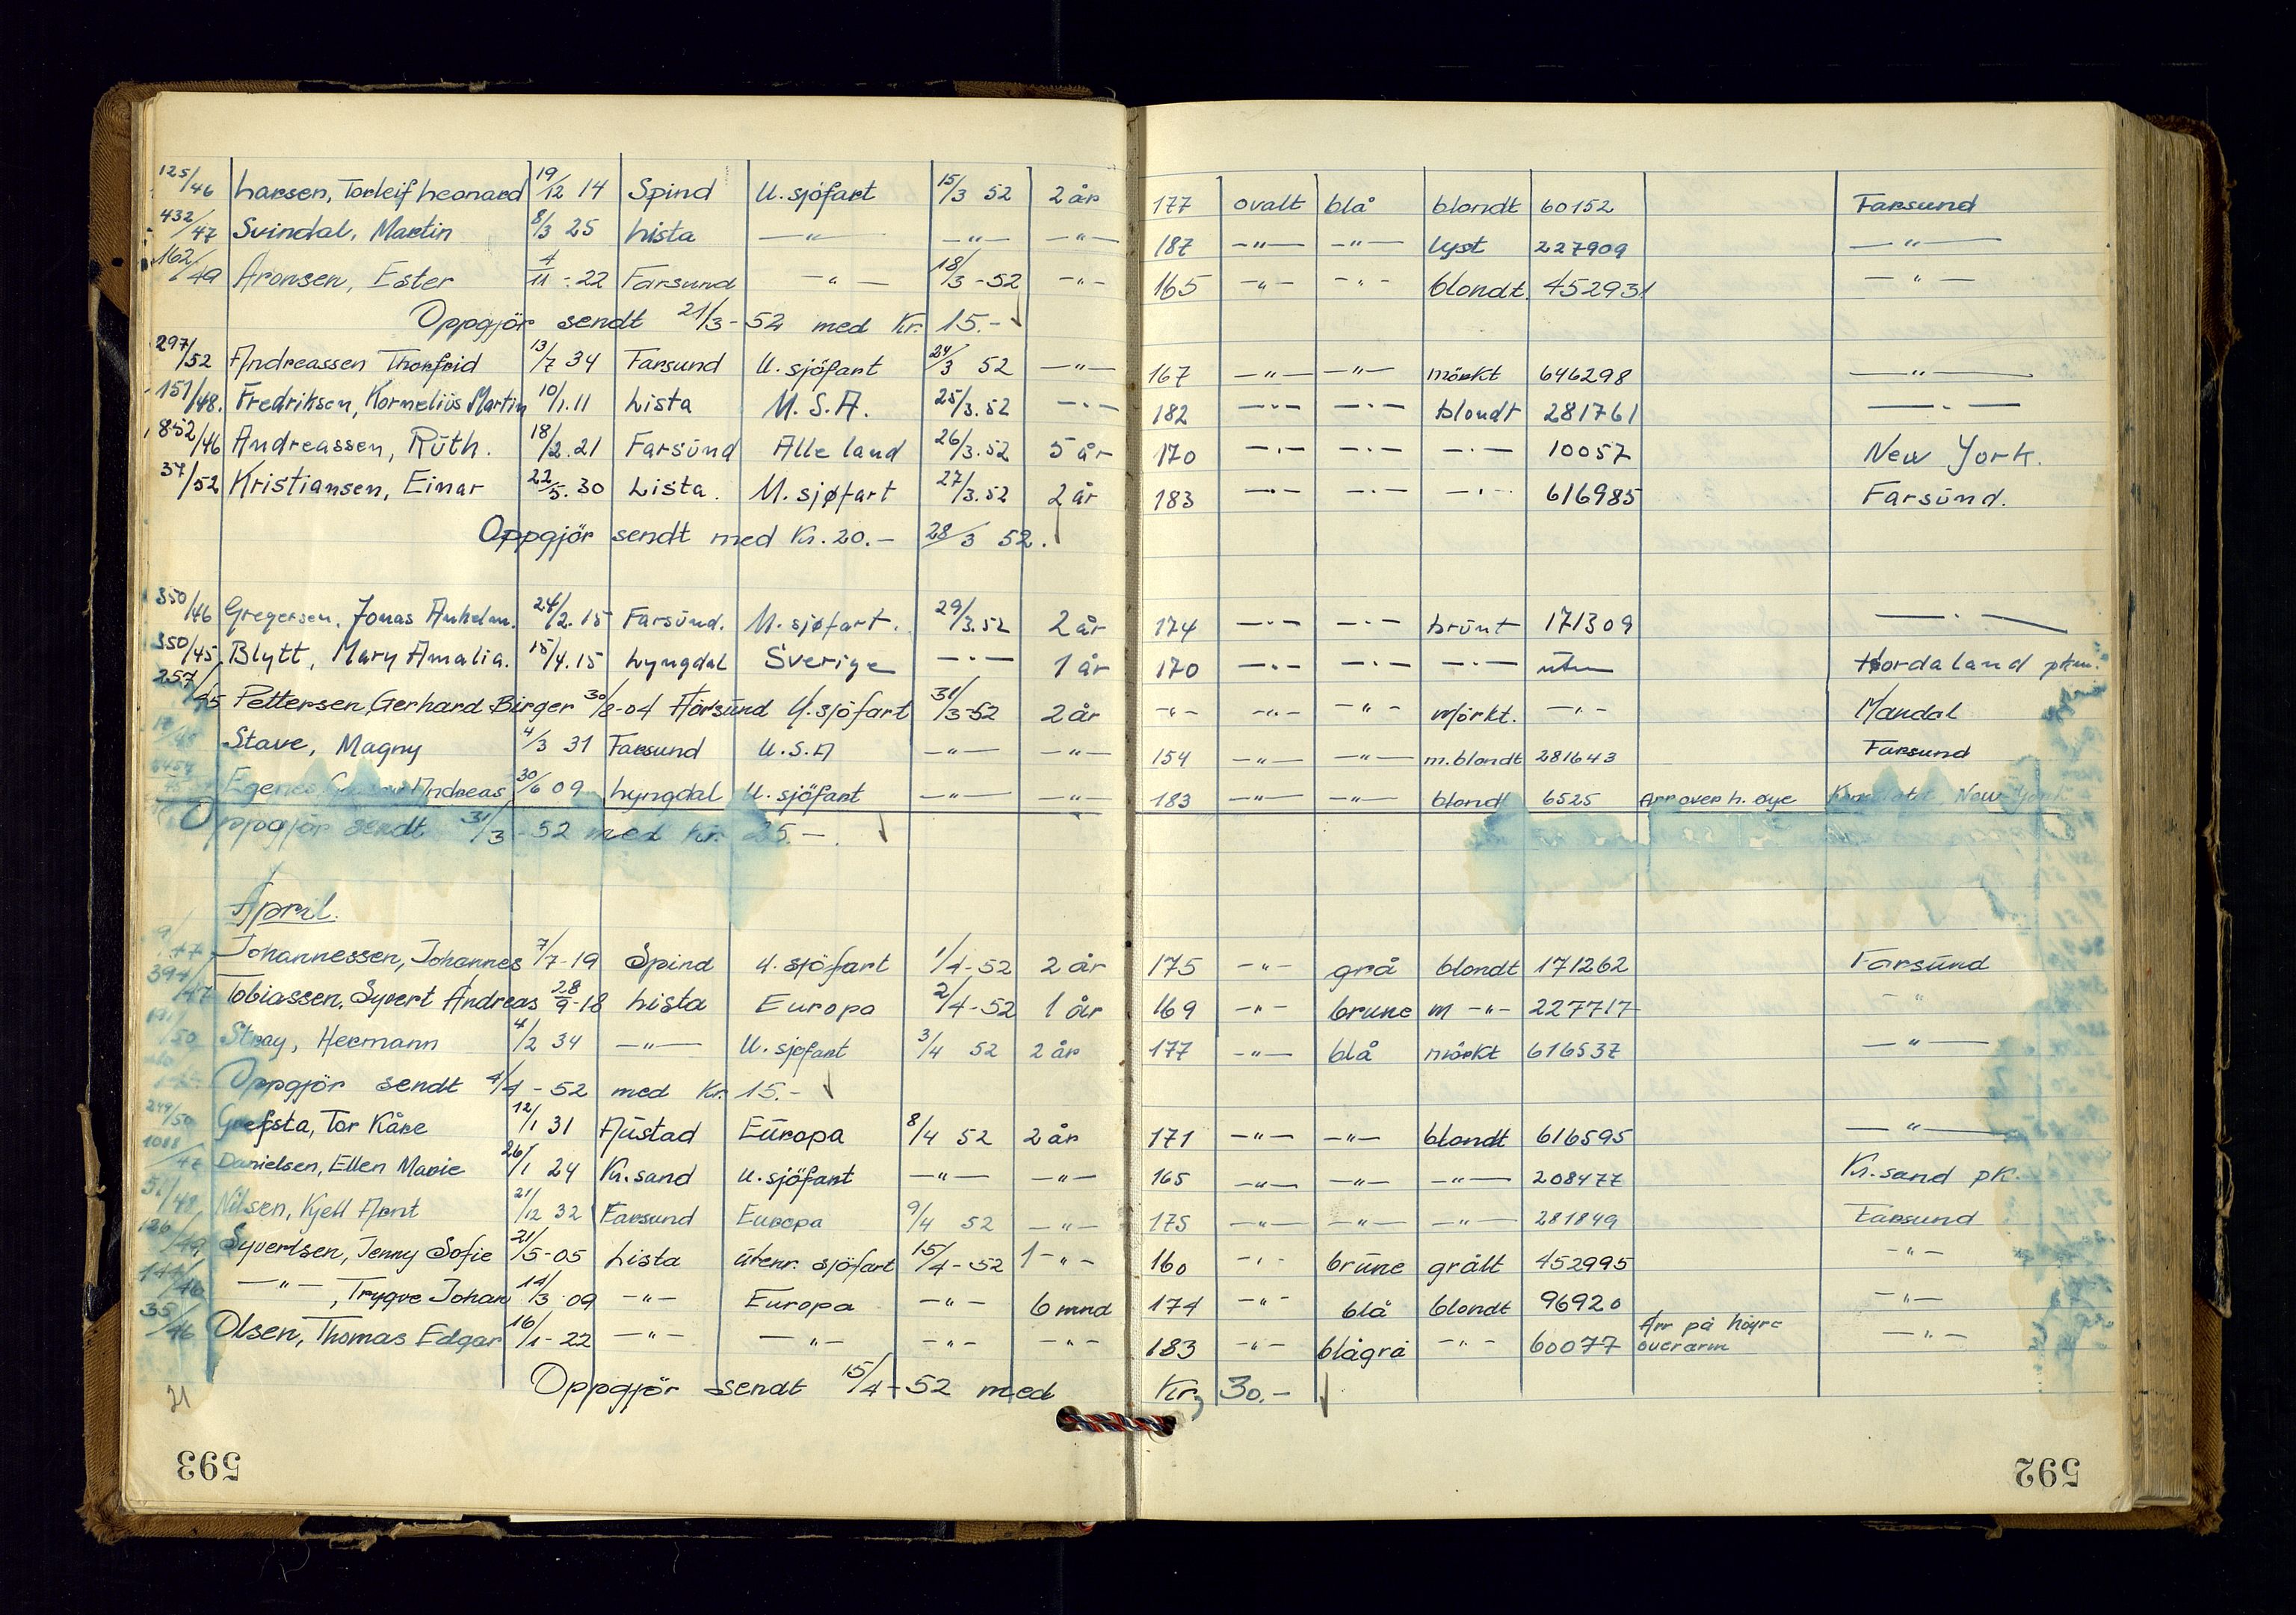 125/46 Larsen, Torleif Leonard 19/12 14 Spind U. sjöfart 15/3 52 2 år 177 ovalt blå blondt 60152 Farsund
432/47 Svindal, Martin 8/3 25 Lista —"— —"— —"— 187 —"— —"— lyst 227909 —"—
162/49 Aronsen, Ester 4/11-22 Farsund —"— 18/3-52 —"— 165 —"— —"— blondt 452931 —"—
Oppgjör sendt 21/3-52 med Kr. 15.-
297/52 Andreassen Thorfrid 13/7 34 Farsund U. sjöfart 24/3 52 —"— 167 —"— —"— mörkt 646298 —"—
151/48. Fredriksen, Kornelius Martin 10/1.11 Lista U.S.A. 25/3.52 —"— 182 —"— —"— blondt 281761 —"—
852/46 Andreassen, Ruth. 18/2.21 Farsund Alle land 26/3.52 5 år 170 —"— —"— —"— 10057 New York.
37/52 Kristiansen, Einar 22/5.30 Lista. U. sjøfart 27/3.52 2 år 183 —"— —"— —"— 616985 Farsund.
Oppgjör sendt med Kr. 20.- 28/3 52.
350/46 Gregersen, Jonas Anhelm. 24/2.15 Farsund. U. sjøfart. 29/3.52 2 år 174 —"— —"— brunt 171309 —"—
350/45 Blytt, Mary Amalia. 15/4.15 Lyngdal Sverige —"— 1 år 170 —"— —"— —"— uten Hordaland pkm.
257/45 Pettersen, Gerhard Birger 30/8-04 Farsund U. sjöfart 31/3-52 2 år —"— —"— —"— mörkt. —"— Mandal
Stave, Magny 4/3 31 Farsund U.S.A —"— —"— 154 —"— —"— m.blondt 281643 Farsund
Egenes Andreas 30/6 09 Lyngdal U. sjöfart —"— —"— 183 —"— —"— blondt 6525 Arr over h. øye New York
Oppgjör sendt 31/3-52 med kr. 25.-
April.
9/47 Johannessen, Johannes 7/7-19 Spind U. sjöfart 1/4-52 2 år 175 —"— grå blondt 171262 Farsund
394/47 Tobiassen, Syvert Andreas 28/9-18 Lista Europa 2/4-52 1 år 169 —"— brune m —"— 227717 —"—
/50 Stray, Hermann 4/2 34 —"— U. sjöfart 3/4 52 2 år 177 —"— blå mörkt 616537 —"—
Oppgjör sendt 4/4-52 med Kr. 15.-
249/50 Grefsta, Tor Kåre 12/1 31 Austad Europa 8/4 52 2 år 171 —"— —"— blondt 616595 —"—
1088/47 Danielsen, Ellen Marie 26/1 24 Kr.sand U. sjöfart —"— —"— 165 —"— —"— —"— 208477 Kr.sand pk.
51/48 Nilsen, Kjell Arnt 21/12 32 Farsund Europa 9/4 52 —"— 175 —"— —"— —"— 281849 Farsund
126/49 Syvertsen, Jenny Sofie 21/5-05 Lista utenr. sjöfart 15/4-52 1 —"— 160 —"— brune grått 452995 —"—
144/46 —"—, Trygve Johan 14/3 09 —"— Europa —"— 6 mnd 174 —"— blå blondt 96920 —"—
35/46 Olsen, Thomas Edgar 16/1-22 —"— —"— —"— —"— 183 —"— blågrå —"— 60077 Arr på höyre overarm —"—
Oppgjör sendt 15/4-52 med Kr. 30.-
21
593
592